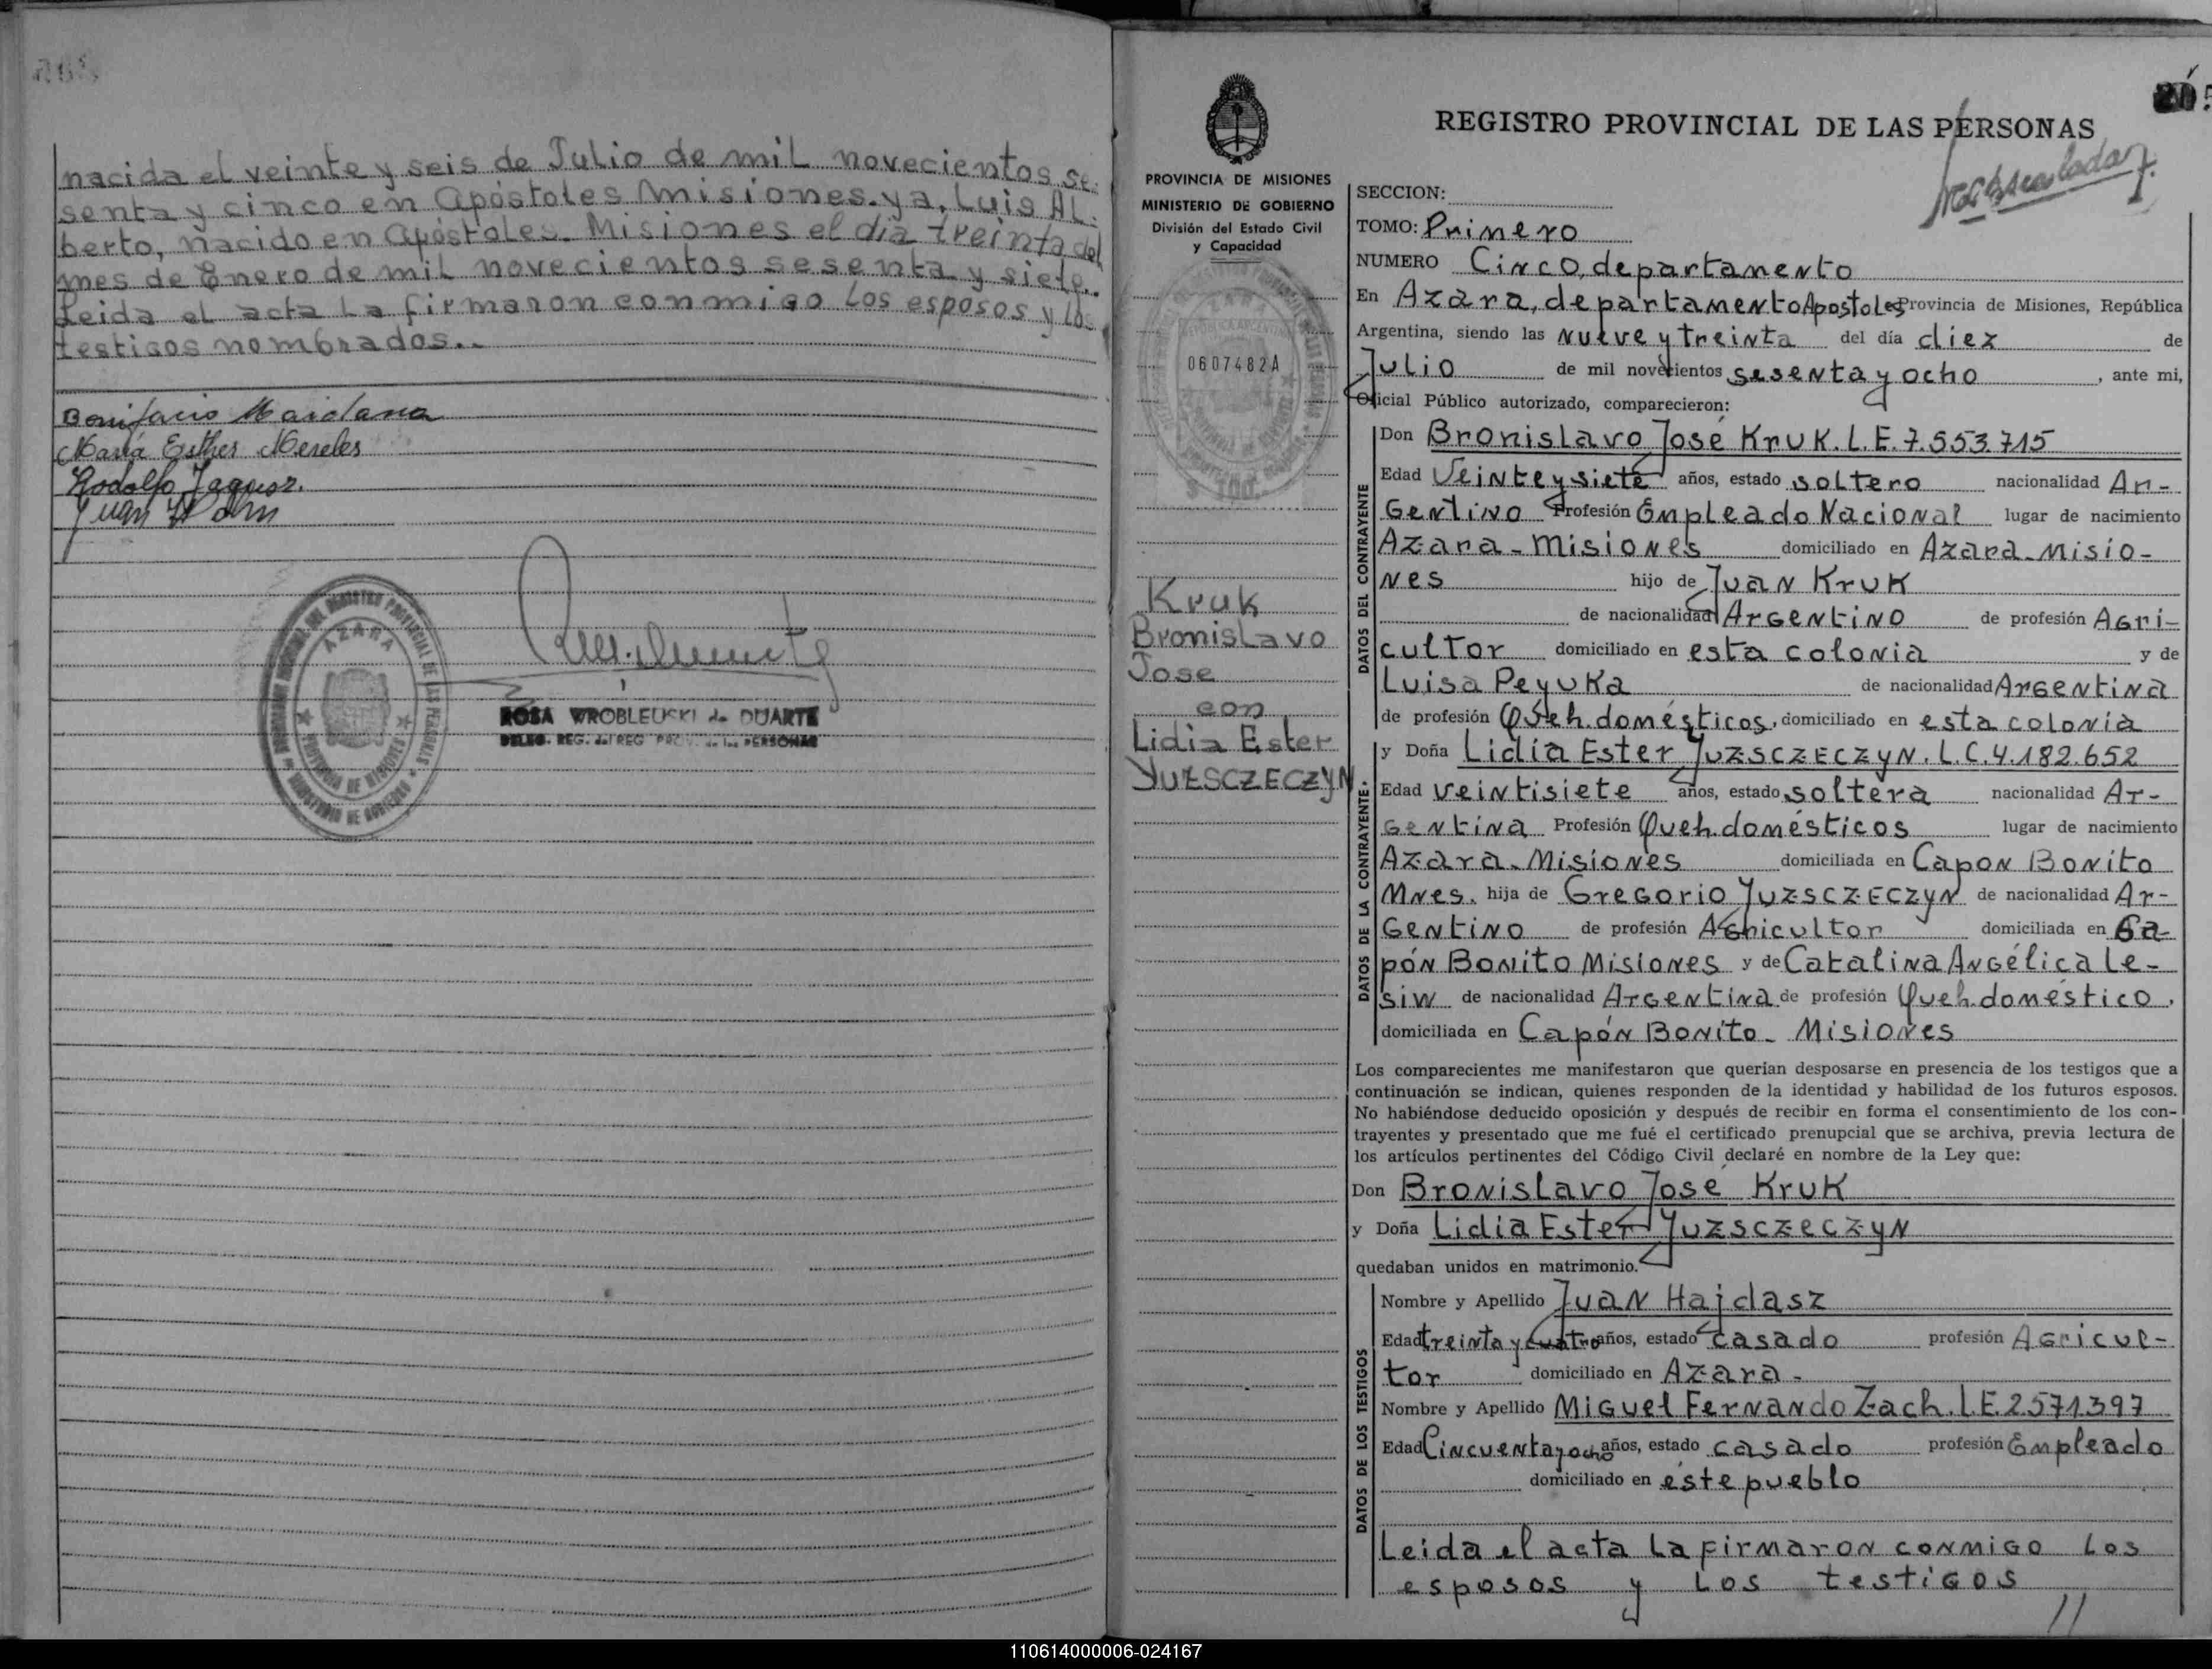 nacida el veinte y seis de Julio de mil novecientos se-
senta y cinco en Apóstoles Misiones. ya, Luis Al-
berto, nacido en Apóstoles. Misiones el día treinta del
mes de Enero de mil novecientos sesenta y siete..
Leida el acta la firmaron conmigo los esposos y los
testigos nombrados..
Bonifacio Maidana
María Esther Mereles
Rodolfo
Juan
AZARA
PROVINCIA DE MISIONES
MINISTERIO DE GOBIERNO
ROSA WROBLEUSKI de DUARTE
DELEG. REG. del REG. PROV. de las PERSONAS
REGISTRO PROVINCIAL DE LAS PERSONAS
PROVINCIA DE MISIONES
MINISTERIO DE GOBIERNO
División del Estado Civil
y Capacidad
0607482A
$ 100.-
Kruk
Bronislavo
Jose
con
Lidia Ester
YUZSCZECZYN
SECCION:
TOMO: Primero
NUMERO Cinco, departamento
En Azara, departamento Apostoles Provincia de Misiones, República
Argentina, siendo las nueve y treinta del día diez de
Julio de mil novecientos sesenta y ocho, ante mi,
Oficial Público autorizado, comparecieron:
DATOS DEL CONTRAYENTE
Don Bronislavo José Kruk. L.E. 7.553.715
Edad Veinte y siete años, estado soltero nacionalidad Ar-
gentino Profesión Empleado Nacional lugar de nacimiento
Azara - Misiones domiciliado en Azara - Misio-
nes hijo de Juan Kruk
de nacionalidad Argentino de profesión Agri-
cultor domiciliado en esta colonia y de
Luisa Peyuka de nacionalidad Argentina
de profesión Queh. domésticos, domiciliado en esta colonia
DATOS DE LA CONTRAYENTE.
y Doña Lidia Ester YUZSCZECZYN. L.C. 4.182.652
Edad veintisiete años, estado soltera nacionalidad Ar-
gentina Profesión Queh. domésticos lugar de nacimiento
Azara - Misiones domiciliada en Capon Bonito
Mnes. hija de Gregorio YUZSCZECZYN de nacionalidad Ar-
gentino de profesión Agricultor domiciliada en Ca-
pón Bonito Misiones y de Catalina Angélica Le-
siw de nacionalidad Argentina de profesión Queh. doméstico,
domiciliada en Capón Bonito - Misiones
Los comparecientes me manifestaron que querían desposarse en presencia de los testigos que a
continuación se indican, quienes responden de la identidad y habilidad de los futuros esposos.
No habiéndose deducido oposición y después de recibir en forma el consentimiento de los con-
trayentes y presentado que me fué el certificado prenupcial que se archiva, previa lectura de
los artículos pertinentes del Código Civil declaré en nombre de la Ley que:
Don Bronislavo José Kruk
y Doña Lidia Ester YUZSCZECZYN
quedaban unidos en matrimonio.
DATOS DE LOS TESTIGOS
Nombre y Apellido Juan Hajdasz
Edad treinta y cuatro años, estado casado profesión Agricul-
tor domiciliado en Azara -
Nombre y Apellido Miguel Fernando Zach. L.E. 2571.397
Edad Cincuenta y ocho años, estado casado profesión Empleado
domiciliado en éste pueblo
Leida el acta la firmaron conmigo los
esposos y los testigos
110614000006-024167